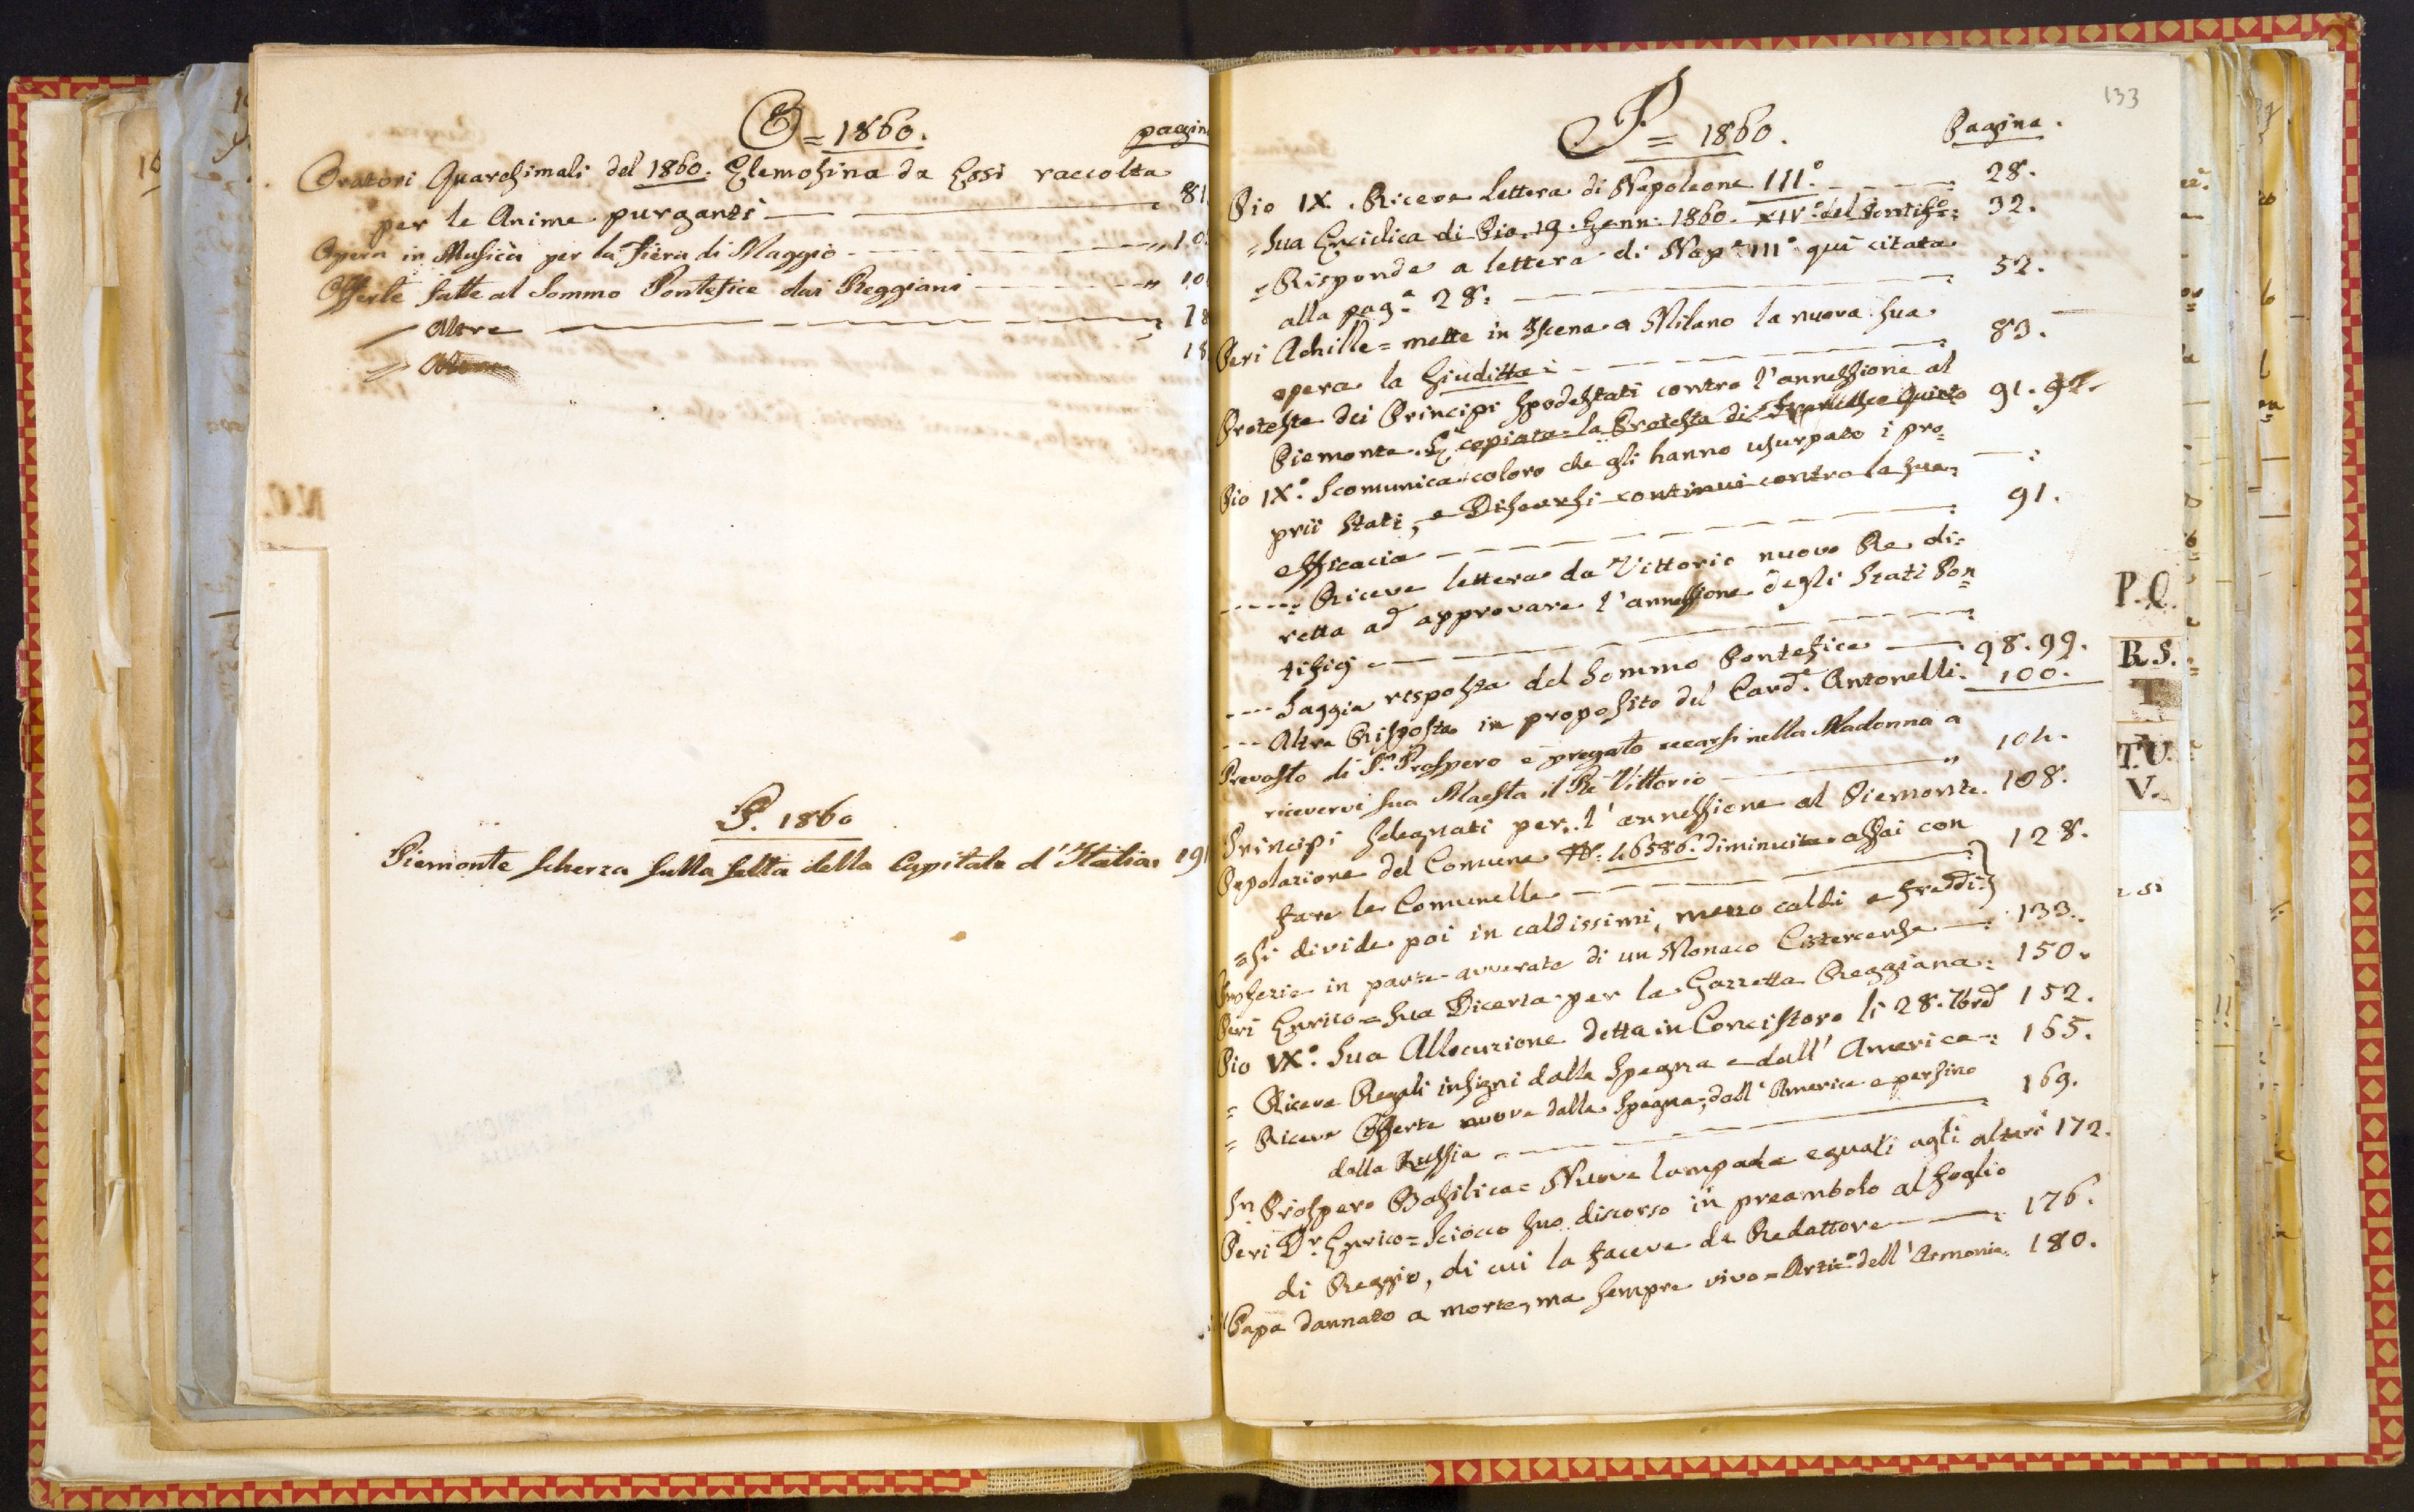 O = 1860.
pagin
Oratori Quaresimali del 1860. Elemosina da Essi raccolta
per le Anime purganti 81
Opera in Musica per la Fiera di Maggio 10
Offerte fatte al Sommo Pontefice dai Reggiani 10
Altre 18
18
P. 1860
Piemonte scherza sulla scelta della Capitale d'Italia. 191
133
P = 1860.
Pagine.
Pio IX. Riceve lettera di Napoleone III.° 28.
= Sua Enciclica di Pio. 19. Genn: 1860. XIV.° del Pontif.°: 32.
= Risponde a lettera di Nap.e III.° quì citata
alla pag.a 28: 52.
Peri Achille = mette in Iscena a Milano la nuova sua
opera la Giuditta: 83.
Proteste dei Principi spodestati contro l'annessione al
Piemonte. E copiata la Protesta di Francesco Quinto 91. 92.
Pio IX.° Scomunica coloro che gli hanno usurpato i pro=
prii Stati, e Discorsi continui contro la sua
efficacia 91.
Riceve lettera da Vittorio nuovo Re di=
retta ad approvare l'annessione degli Stati Pon=
tificj
Saggia risposta del Sommo Pontefice 98. 99.
Altra Risposta in proposito del Card.e Antonelli. 100.
Prevosto di S.n Prospero è pregato recarsi nella Madonna a
ricevervi sua Maestà il Re Vittorio " 104.
Principi sdegnati per l'annessione al Piemonte. 108.
Popolazione del Comune N.° 46586. diminuita assai con
fare le Comunelle 128.
= si divide poi in caldissimi, mezzo caldi e freddi:
Profezie in parte avverate di un Monaco Cistercense 133.
Peri Enrico = sua Diceria per la Gazzetta Reggiana: 150.
Pio IX.° Sua Allocuzione detta in Concistoro li 28. 7bre 152.
= Riceve Regali insigni dalla Spagna e dall'America: 165.
= Riceve Offerte nuove dalla Spagna, dall'America e persino
dalla Russia 169.
Sn Prospero Basilica = Nuove lampade eguali agli altari 172.
Peri Dr. Enrico = Sciocco suo discorso in preambolo al foglio
di Reggio, di cui la faceva da Redattore 176.
Papa dannato a morte, ma sempre vivo = Artic.° dell'Armonia. 180.
P.Q.
R.S.
T
T.U.
V.
N.O.